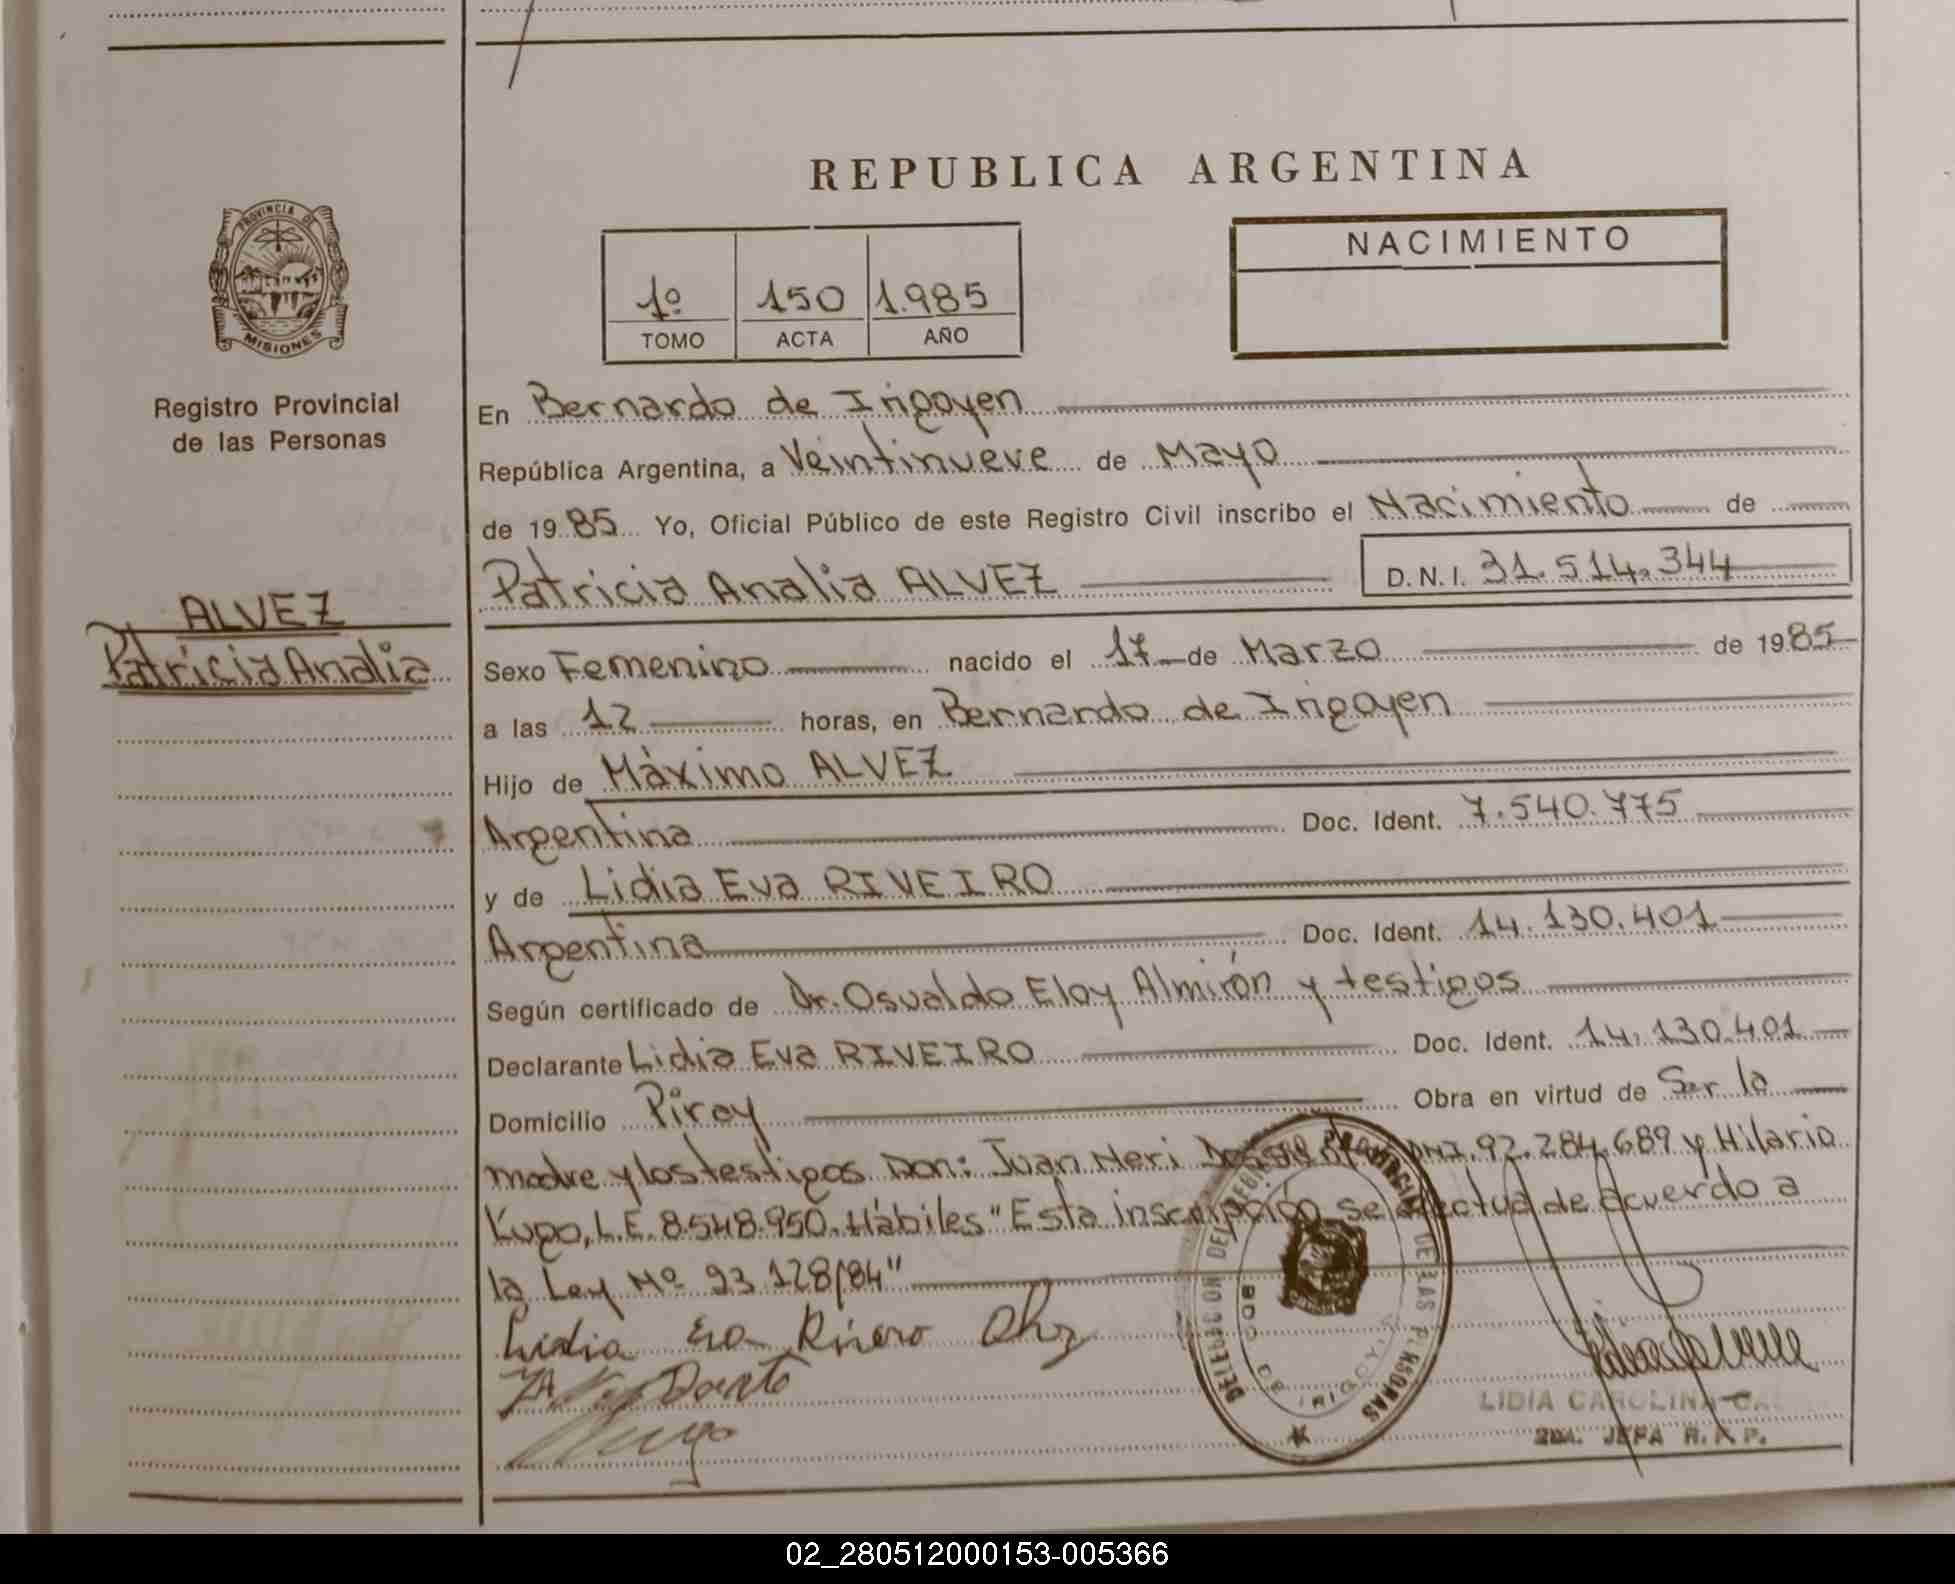 REPUBLICA ARGENTINA
PROVINCIA DE
MISIONES
Registro Provincial
de las Personas
ALVEZ
Patricia Analia
1º 150 1.985
TOMO ACTA AÑO
NACIMIENTO
En Bernardo de Irigoyen
República Argentina, a Veintinueve de Mayo
de 1985 Yo, Oficial Público de este Registro Civil inscribo el Nacimiento de
Patricia Analia ALVEZ D.N.I. 31.514.344
Sexo Femenino nacido el 17 de Marzo de 1985
a las 12 horas, en Bernardo de Irigoyen
Hijo de Máximo ALVEZ
Argentina Doc. Ident. 7.540.775
y de Lidia Eva RIVEIRO
Argentina Doc. Ident. 14.130.401
Según certificado de Dr. Osvaldo Eloy Almirón y testigos
Declarante Lidia Eva RIVEIRO Doc. Ident. 14.130.401
Domicilio Piray Obra en virtud de Ser la
madre y los testigos Don: Juan Neri DNI. 92.284.689 y Hilario
Kugo, L.E. 8.548.950. Hábiles "Esta inscripción se efectua de acuerdo a
la Ley Nº 23.128/84"
Lidia Eva Rivero
DELEGACION DEL REG. PROVINCIAL DE LAS PERSONAS
BDO. DE IRIGOYEN
LIDIA CAROLINA
2DA. JEFA R. P. P.
02_280512000153-005366